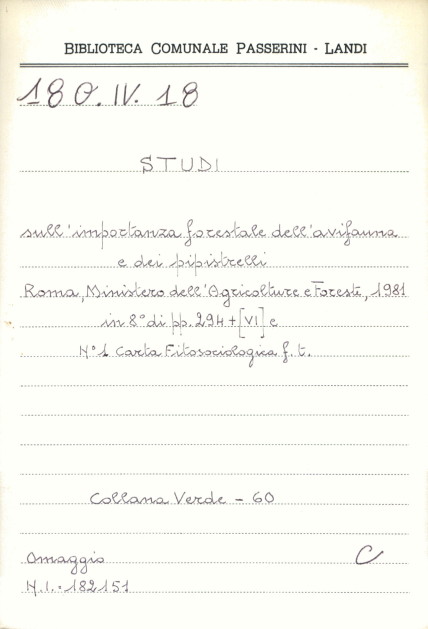 BIBLIOTECA COMUNALE PASSERINI - LANDI
180.IV.18
STUDI
sull'importanza forestale dell'avifauna
e dei pipistrelli
Roma, Ministero dell'Agricolture e Foreste, 1981
in 8° di pp. 294 + [VI] e
N° 1 Carta Fitosociologica f. t.
Collana Verde - 60
Omaggio C
N.I. - 182151